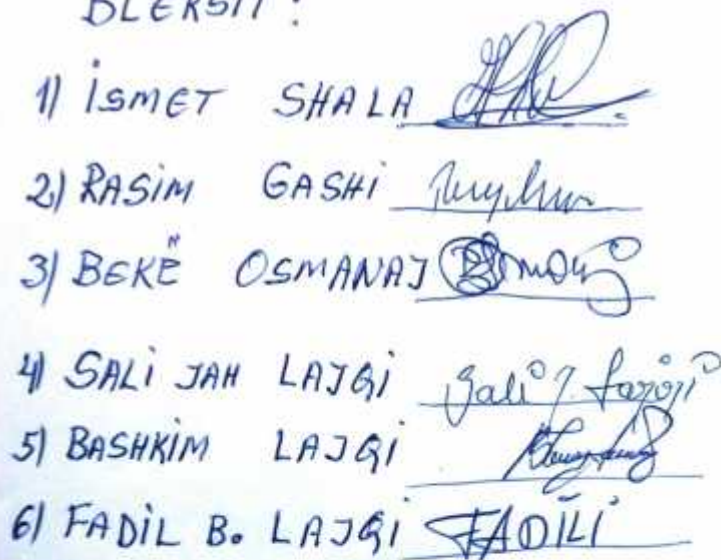 1) ISMET SHALA
2) RASIM GASHI
3) BEKË OSMANAJ
4) SALI JAH LAJQI Sali J. Lajqi
5) BASHKIM LAJQI
6) FADIL B. LAJQI FADILI